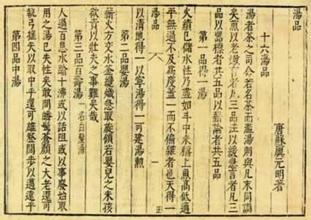 湯品
十六湯品
唐蘇廙元明著
湯者茶之司命若名茶而濫湯則與凡末同調
矣煎以老嫩言者凡三品注以緩急言者凡三
品以器標者共五品以薪論者共五品
第一品得一湯
火績已儲水性乃盡如斗中米如稱上魚高低適
平無過不及為度蓋一而不偏雜者也天得一
湯品
一
以清地得一以寧湯得一可建湯勳
第二品嬰湯
薪火方交水釜纔熾急取旋傾若嬰兒之未孩
欲責以壯夫之事難矣哉
第三品百壽湯 一名白髮湯
人過百息水踰十沸或以話阻或以事廢始取
用之湯已失性矣敢問皤鬢蒼顏之大老還可
執弓挾矢以取中乎還可雄登闊步以邁遠乎
第四品中湯